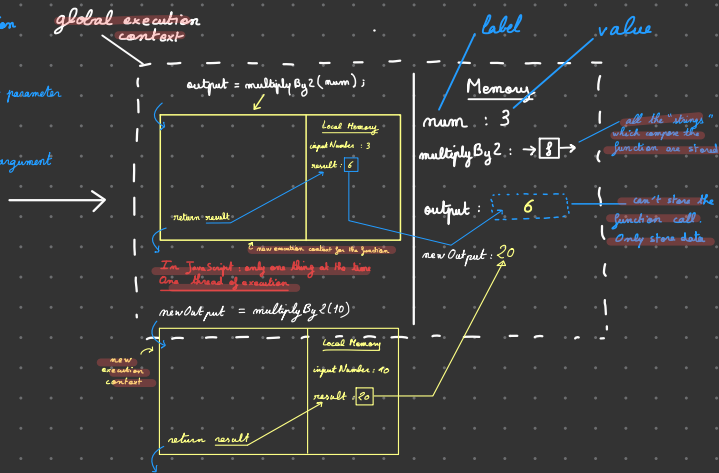 global execution
context
label
value
parameter
argument
output = multiplyBy2(num);
Local Memory
inputNumber : 3
result : 6
return result
new execution context for the function
In JavaScript : only one thing at the time
One thread of execution
Memory
num : 3
multiplyBy2 : → f →
all the "strings"
which compose the
function are stored
output : 6
can't store the
function call
Only store data
newOutput : 20
newOutput = multiplyBy2(10)
new
execution
context
Local Memory
inputNumber : 10
result : 20
return result